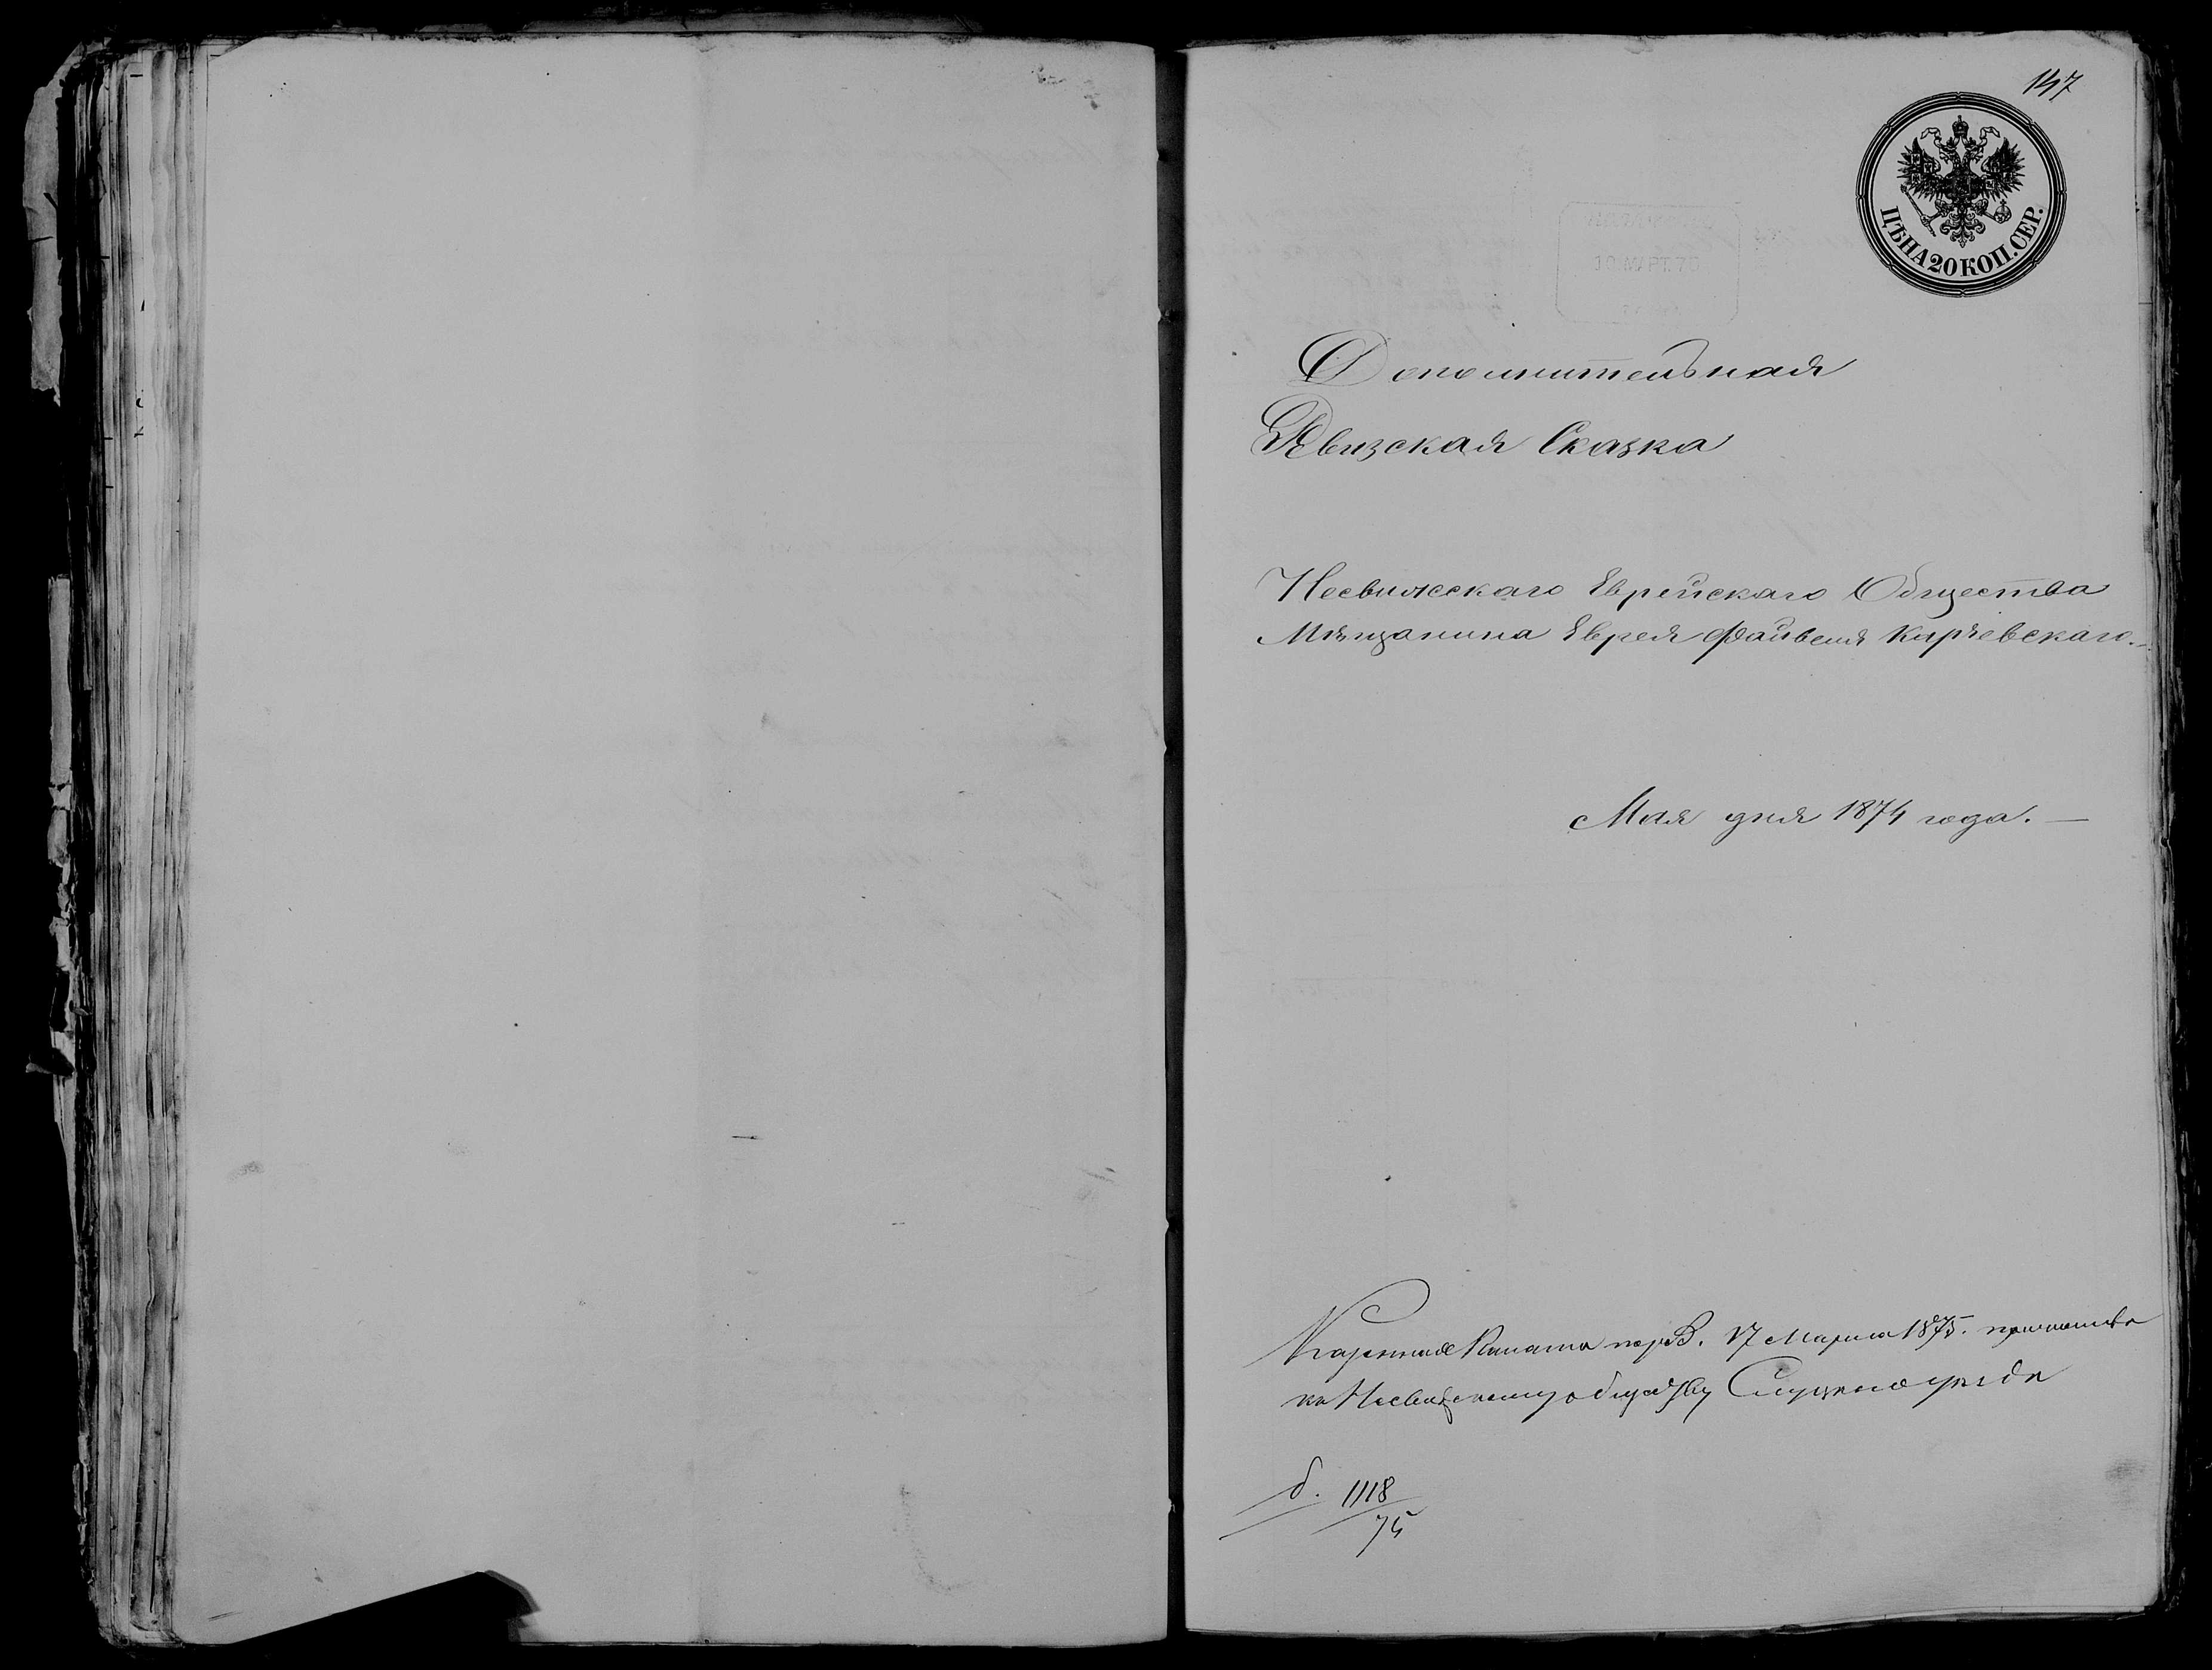 147
ЦѢНА 20 КОП. СЕР.
10 МАРТ. 70
Дополнительная
Ревизская Сказка
Несвижскаго Еврейскаго Общества
Мѣщанина Еврея Файвеля
Мая дня 1874 года. —
Казенная Палата 17 Марта 1875.
къ Несвижскому обществу Слуцкаго уѣзда
д. 1118
75